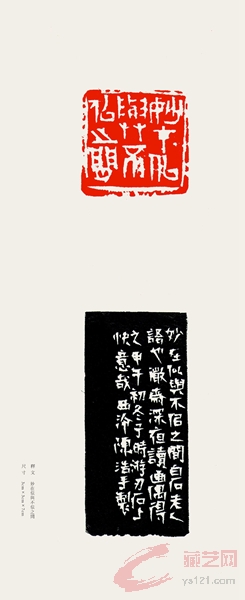 妙在佀
與不
佀之間
妙在佀與不佀之間白石老人
語也嚴齋深夜讀畫偶得
之甲午初冬子時游刃石上
快意哉西泠陳浩手製
釋文 妙在似與不似之間
尺寸
藏艺网
ys121.com